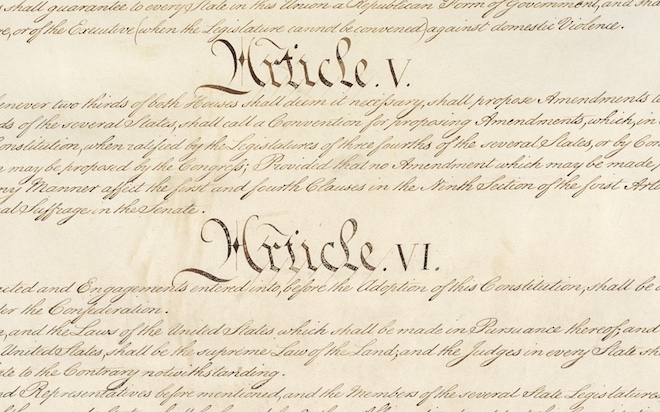 shall guarantee to every State in this Union a Republican Form of Government, and sha
re, or of the Executive (when the Legislature cannot be convened) against domestic Violence.
Article. V.
henever two thirds of both Houses shall deem it necessary, shall propose Amendments to
ds of the several States, shall call a Convention for proposing Amendments, which, in
onstitution, when ratified by the Legislatures of three fourths of the several States, or by Con
n may be proposed by the Congress; Provided that no Amendment which may be made
ny Manner affect the first and fourth Clauses in the Ninth Section of the first Arti
al Suffrage in the Senate.
Article. VI.
acted and Engagements entered into, before the Adoption of this Constitution, shall be a
der the Confederation.
n, and the Laws of the United States which shall be made in Pursuance thereof; and
United States, shall be the supreme Law of the Land; and the Judges in every State sh
ate to the Contrary notwithstanding.
nd Representatives before mentioned, and the Members of the several State Legislatures